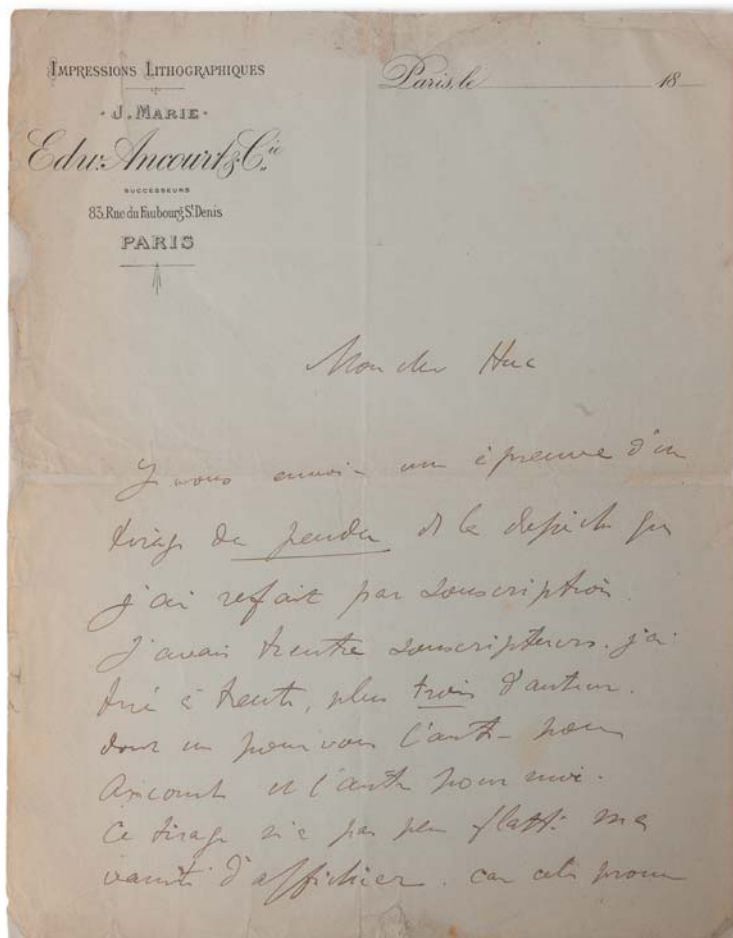 IMPRESSIONS LITHOGRAPHIQUES
· J. MARIE ·
Edw. Ancourt & Cie
SUCCESSEURS
83, Rue du Faubourg St Denis
PARIS
Paris, le 18
Mon cher Huc
Je vous envoie une épreuve d'un
tirage du pendu de la dépêche que
j'ai refait par souscription.
J'avais trente souscripteurs. j'ai
tiré à trente, plus trois d'auteur.
dont un pour vous l'autre pour
Ancourt et l'autre pour moi.
Ce tirage n'a pas peu flatté ma
vanité d'affichier. car cela prouve